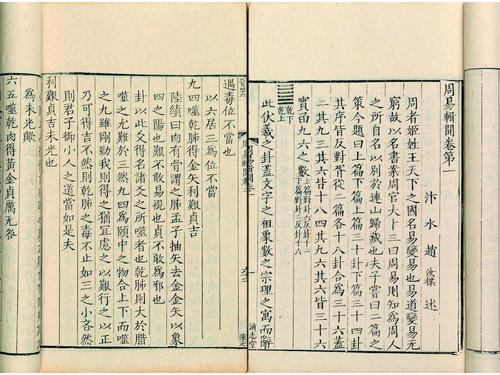 周易輯聞卷第一
汴水趙 汝楳 述
周者姬姓王天下之國名易變易也易道變易无
窮故以名書案周官大卜三曰周易則知為周人
之所自名以別於連山歸藏也夫子嘗曰二篇之
策今題曰上下篇上篇三十卦下篇三十四卦
其序皆反對胥從二篇各十八卦合為三十六蓋
二其九三其六皆十八四其九六其六皆三十六
實函九六之數 上篇對卦六反卦十二 下篇對卦二反卦十六
乾下乾上
此伏羲之卦蓋文字之祖象數之宗理之寓而辭
通志堂
遇毒位不當也
以六居三為位不當
九四噬乾胏得金矢利艱貞吉
陸績曰肉有骨謂之胏孟子抽矢去金金矢以象
四之陽也艱不敢易視也貞不敢為邪也
卦以此爻得名諸爻之所噬者也乾胏則大於腊
噬之尤難於三然九四為頤中之物合上下而噬
之九雖剛勁我則得之猶宜處之以艱行之以正
乃可得吉不然則乾胏之毒不止如三之小吝然
則君子御小人之道當如是夫
利艱貞吉未光也
為未光歟
六五噬乾肉得黃金貞厲无咎